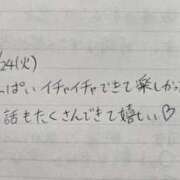 /24(火)
っぱいイチャイチャできて楽しかっ
話もたくさんできて嬉しい♡